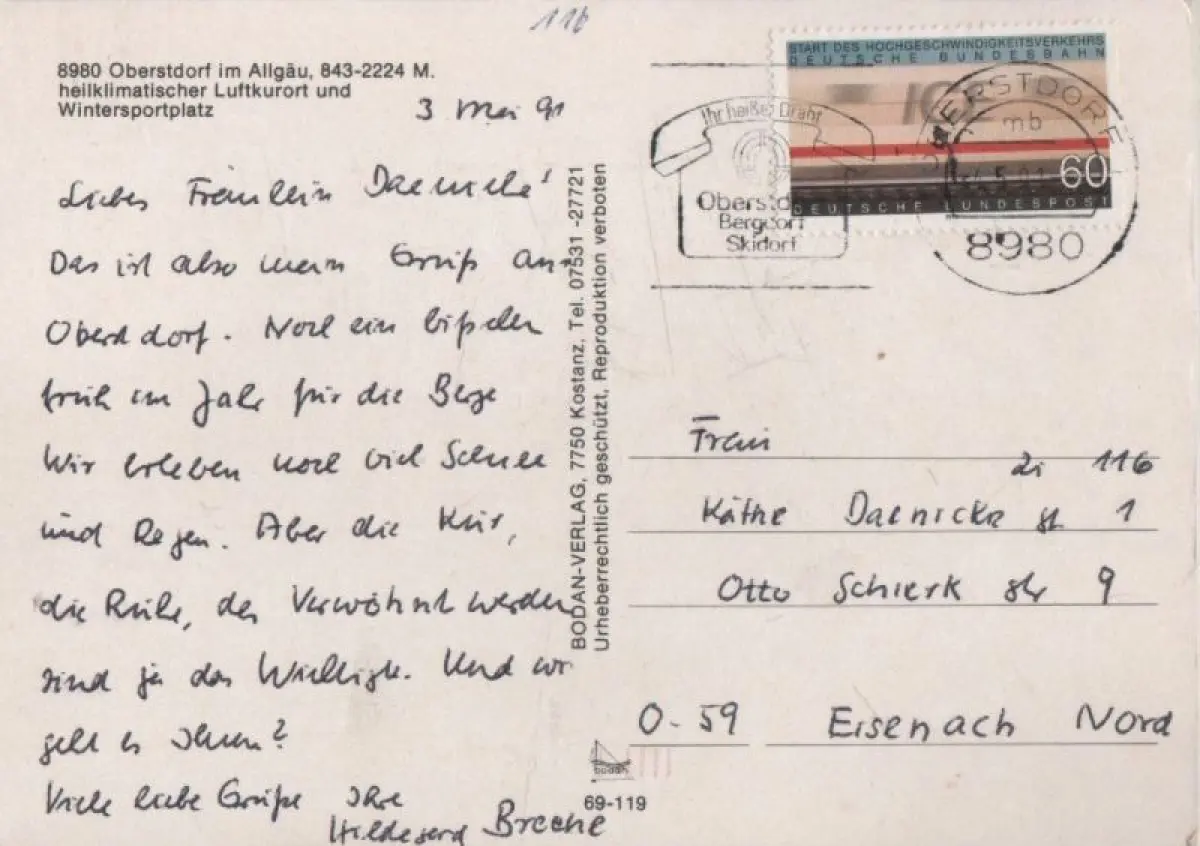 116
8980 Oberstdorf im Allgäu, 843-2224 M.
heilklimatischer Luftkurort und
Wintersportplatz
3. Mai 91
Liebes Fräulein Daenicke!
Das ist also mein Gruß aus
Oberstdorf. Noch ein bißchen
früh im Jahr für die Berge
Wir erleben noch viel Schnee
und Regen. Aber die Kur,
die Ruhe, das Verwöhnt werden
sind ja das Wichtigste. Und wie
geht es Ihnen?
Viele liebe Grüße Ihre
Hildegard
BODAN-VERLAG, 7750 Kostanz, Tel. 07531 -27721
Urheberrechtlich geschützt, Reproduktion verboten
bodan
69-119
Ihr heißer Draht
Oberstdorf
Bergdorf
Skidorf
START DES HOCHGESCHWINDIGKEITSVERKEHRS
DEUTSCHE BUNDESBAHN
ICE
60
DEUTSCHE BUNDESPOST
OBERSTDORF
mb
8980
Fräulein
Zi 116
Käthe Daenicke st 1
Otto Schierk str 9
O-59 Eisenach Nord